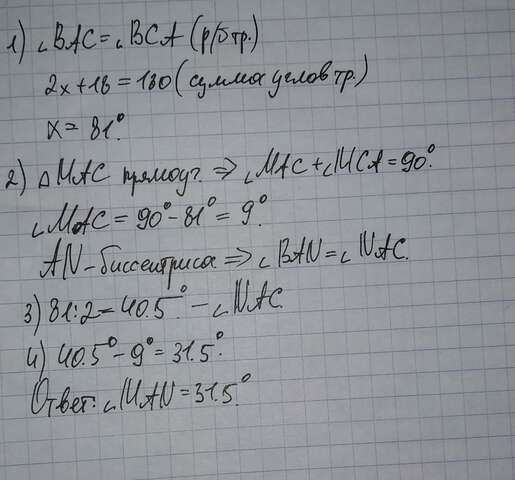 1) ∠BAC=∠BCA (р/б тр.)
2x+18=180 (сумма углов тр.)
x=81°.
2) △MAC прямоуг. ⇒ ∠MAC+∠MCA=90°
∠MAC=90°-81°=9°.
AN-биссектриса ⇒ ∠BAN=∠NAC.
3) 81:2=40.5°-∠NAC.
4) 40.5°-9°=31.5°.
Ответ: ∠MAN=31.5°.